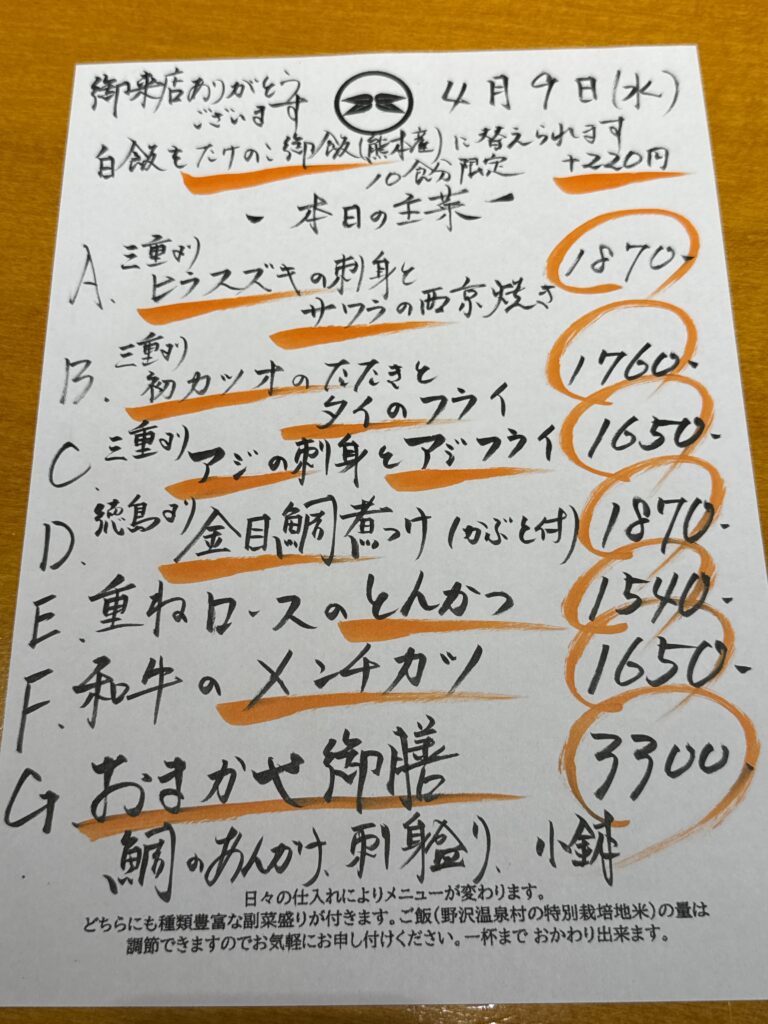 御来店ありがとう
ございます
4月9日(水)
白飯をたけのこ御飯(熊本産)に替えられます
10食分限定 +220円
ー 本日の主菜 ー
A. 三重より ヒラスズキの刺身と 1870-
サワラの西京焼き
B. 三重より 初カツオのたたきと 1760-
タイのフライ
C. 三重より アジの刺身とアジフライ 1650-
D. 徳島より 金目鯛煮つけ(かぶと付) 1870-
E. 重ねロースのとんかつ 1540-
F. 和牛のメンチカツ 1650-
G. おまかせ御膳 3300-
鯛のあんかけ、刺身盛り、小鉢
日々の仕入れによりメニューが変わります。
どちらにも種類豊富な副菜盛りが付きます。ご飯(野沢温泉村の特別栽培地米)の量は
調節できますのでお気軽にお申し付けください。一杯まで おかわり出来ます。